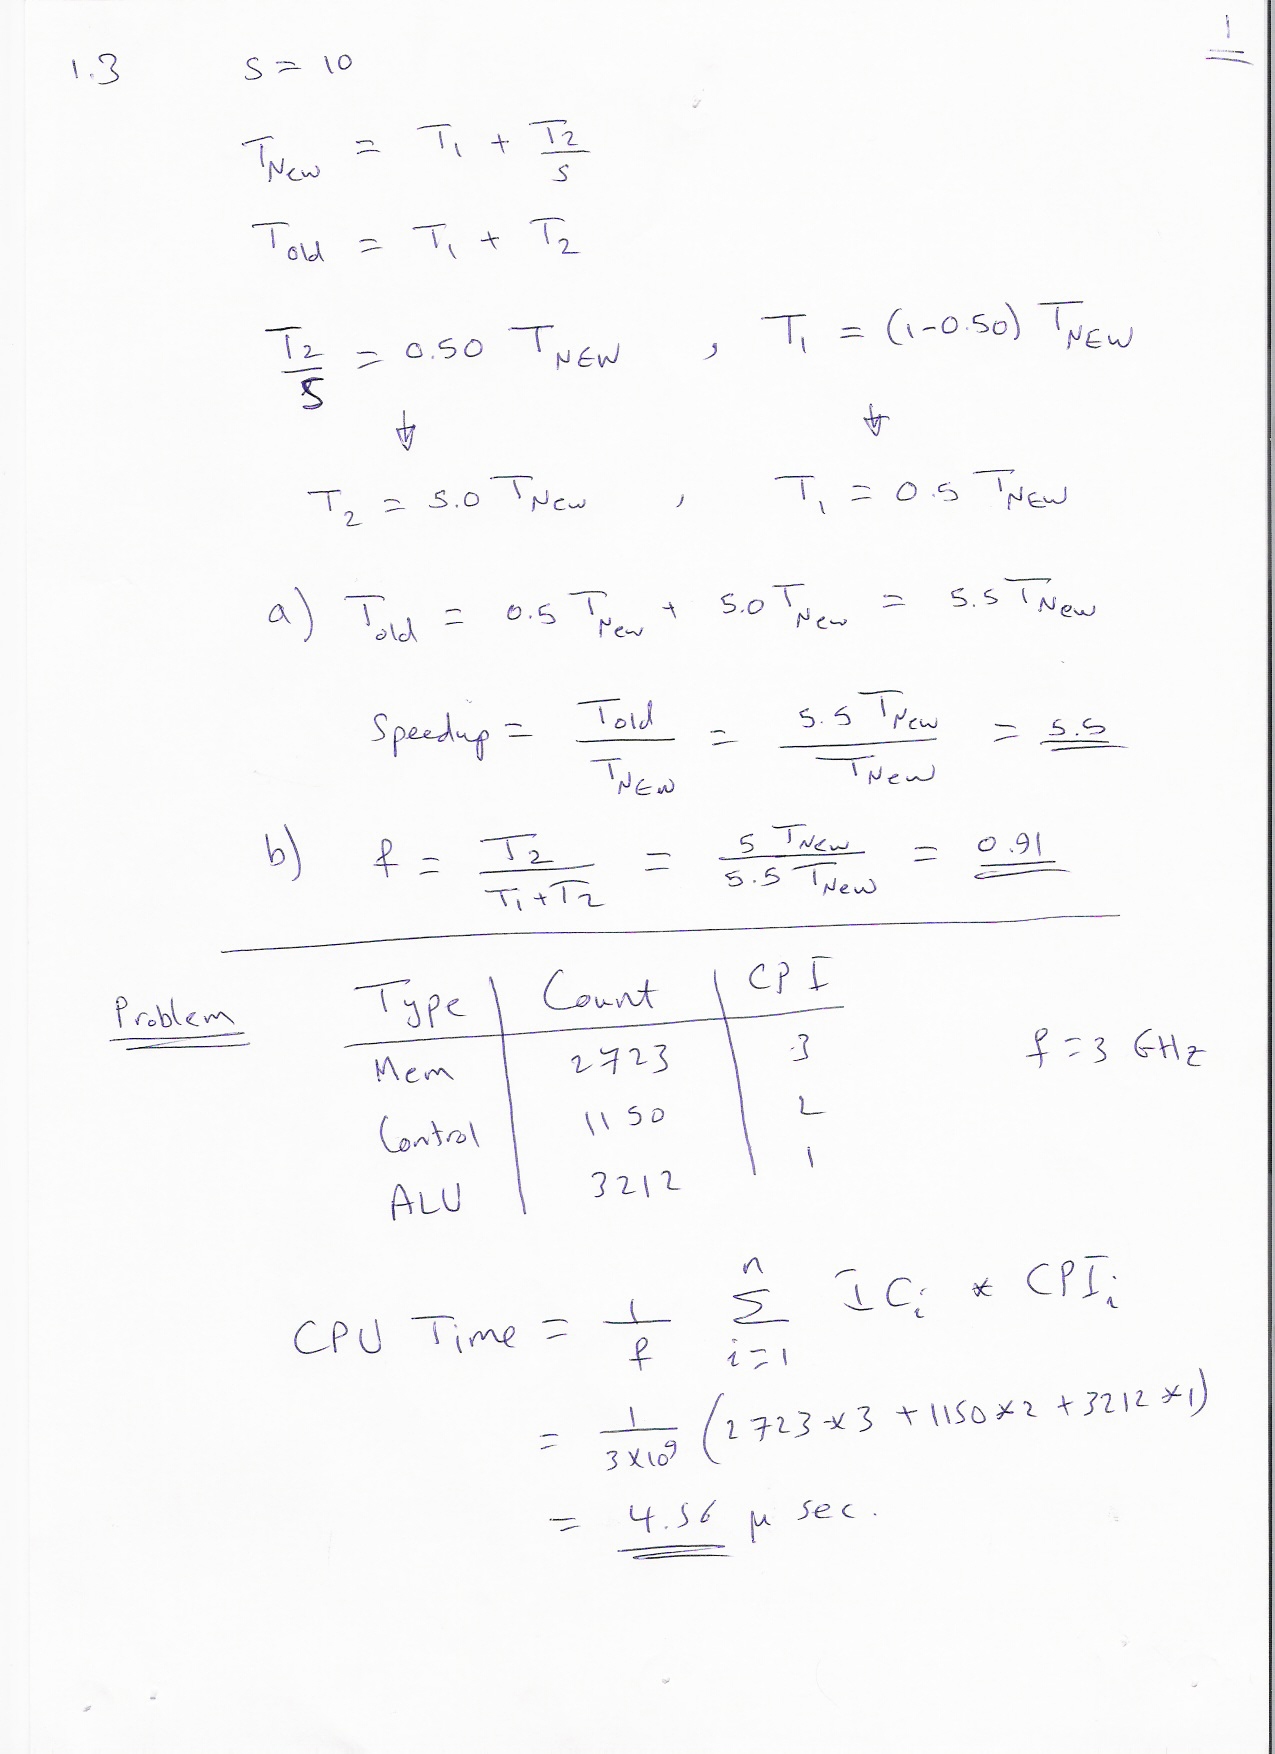 1
1.3 S = 10
T_New = T_1 + T_2/S
T_old = T_1 + T_2
T_2/S = 0.50 T_NEW , T_1 = (1-0.50) T_NEW
↓ ↓
T_2 = 5.0 T_New , T_1 = 0.5 T_NEW
a) T_old = 0.5 T_New + 5.0 T_New = 5.5 T_New
Speedup = T_old/T_NEW = 5.5 T_New/T_New = 5.5
b) f = T_2/(T_1+T_2) = 5 T_New/5.5 T_New = 0.91
Problem Type | Count | CPI
Mem | 2723 | 3 f = 3 GHz
Control | 1150 | 2
ALU | 3212 | 1
CPU Time = 1/f Σ_{i=1}^{n} IC_i * CPI_i
= 1/(3×10^9) (2723*3 + 1150*2 + 3212*1)
= 4.56 μ sec.